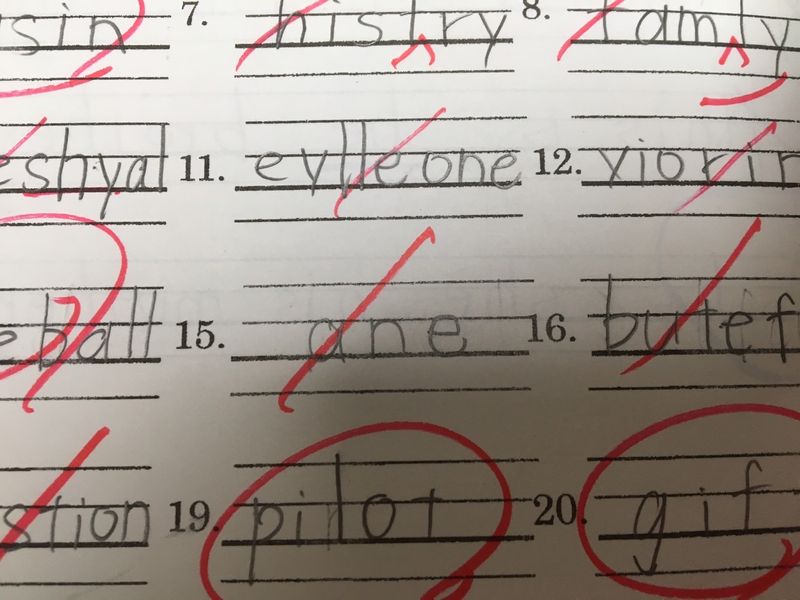 sin 7. histry 8. famly
eshyal 11. evlleone 12. viorin
eball 15. ane 16. butef
stion 19. pilot 20. gif